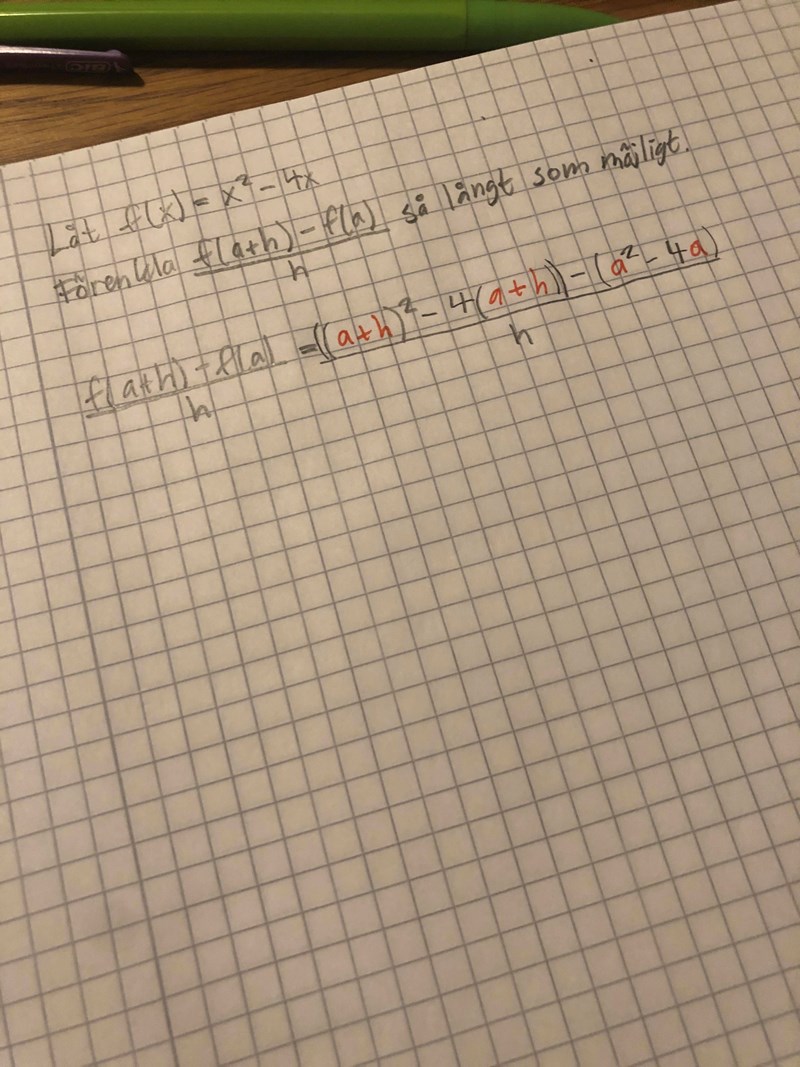 Låt f(x) = x² - 4x
Förenkla f(a+h) - f(a) / h så långt som möjligt.
f(a+h) - f(a) / h = ((a+h)² - 4(a+h)) - (a² - 4a) / h